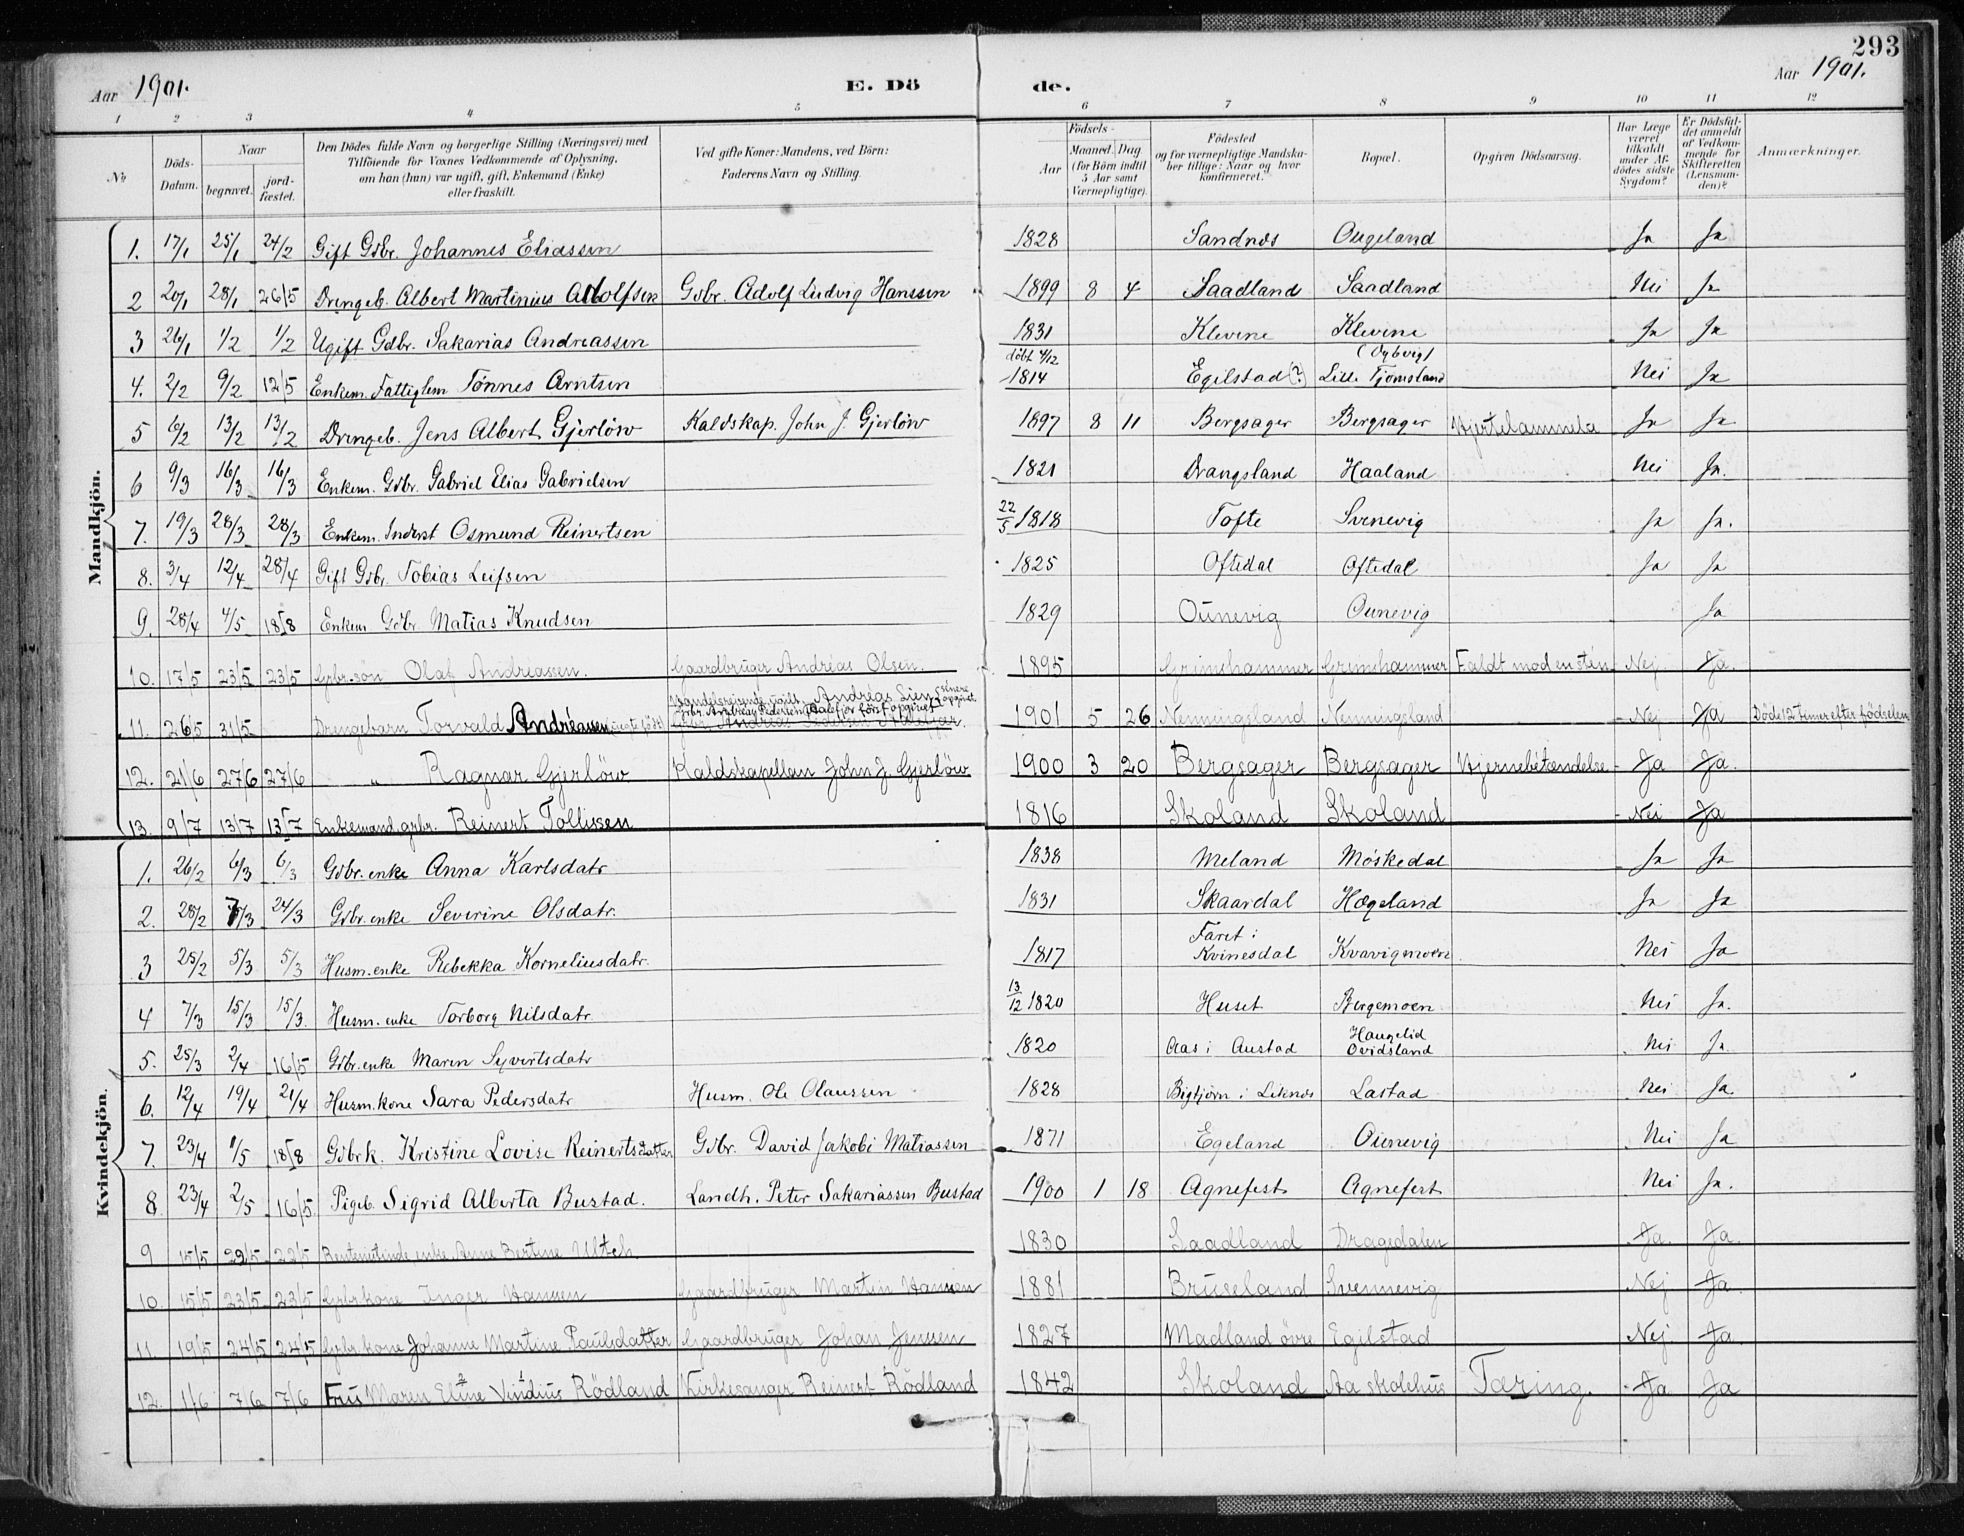 293
Aar 1901. E. Dö de. Aar 1901.
1 2 3 4 5 6 7 8 9 10 11 12
No. Döds-Datum. Naar begravet. jord-fæstet. Den Dödes fulde Navn og borgerlige Stilling (Næringsvei) med Tilföiende for Voxnes Vedkommende af Oplysning, om han (hun) var ugift, gift, Enkemand (Enke) eller fraskilt. Ved gifte Koner: Mandens, ved Börn: Faderens Navn og Stilling. Födsels- Aar Maaned. Dag. (for Börn indtil 5 Aar samt Værnepligtige). Födested og for værnepligtige Mandskaber tillige: Naar og hvor konfirmeret. Bopæl. Opgiven Dödsaarsag. Har Læge været tilkaldt under Afdödes sidste Sygdom? Er Dödsfaldet anmeldt af Vedkommende for Skifteretten (Lensmanden)? Anmærkninger.
Mandkjön.
1. 17/1 25/1 24/2 Gift Gdbr. Johannes Eliassen 1828 Sandnes Ougeland Ja Ja
2 20/1 28/1 26/5 Drengeb. Albert Martinius Adolfsen Gdbr. Adolf Ludvig Hanssen 1899 8 4 Saadland Saadland Nei Ja
3 26/1 1/2 1/2 Ugift Gdbr. Sakarias Andreassen 1831 Klevene Klevene Ja Ja
4. 2/2 9/2 12/5 Enkem. Fattiglem Tönnes Arntsen döbt 4/12 1814 Egilstad (?) Lille Tjomsland Nei Ja
5 6/2 13/2 13/2 Drengeb. Jens Albert Gjerlöw Kaldskap. John J. Gjerlöw 1897 8 11 Bergsager Bergsager Ja Ja
6 9/3 16/3 16/3 Enkem. Gdbr. Gabriel Elias Gabrielsen 1821 Drangsland Haaland Nei Ja.
7. 19/3 28/3 28/3 Enkem. Inderst Osmund Reinertsen 22/5 1818 Tofte Svenevig Ja Ja.
8. 3/4 12/4 28/4 Gift Gdbr. Tobias Leifsen 1825 Oftedal Oftedal Ja Ja
9. 28/4 4/5 18/8 Enkem Gdbr. Matias Knudsen 1829 Ounevig Ounevig Ja
10. 17/5 23/5 23/5 Gbr. sön Olaf Andreassen. Gaardbruger Andréas Olsen. 1895 Grimshammer Grimshammer Faldt mod en sten Nej Ja.
11. 26/5 31/5 Drengebarn Torvald Andréassen Andréas Lien 1901 5 26 Nenningsland Nenningsland Nej Ja Döde 12 timer efter födselen
12. 21/6 27/6 27/6 " Ragnar Gjerlöw Kaldskapellan John J. Gjerlöw 1900 3 20 Bergsager Bergsager Hjernebetændelse Ja Ja.
13. 9/7 13/7 13/7 Enkemand grbr. Reinert Tollissen 1816 Skoland Skoland Nei Ja
Kvindekjön.
1. 26/2 6/3 6/3 Gdbr. enke Anna Karlsdatr 1838 Meland Möskedal Ja Ja
2. 28/2 7/3 24/3 Gdbr. enke Severine Olsdatr. 1831 Skaardal Hægeland Ja Ja
3 25/2 5/3 5/3 Husm. enke Rebekka Korneliusdatr. 1817 Faret i Kvinesdal Kvavigmoen Nei Ja
4 7/3 15/3 15/3. Husm. enke Torborg Nilsdatr. 13/12 1820 Huset Bergemoen Nei Ja.
5. 25/3 2/4 16/5 Gdbr. enke Maren Syvertsdatr 1820 Aas i Austad Haugelid Ovidsland Nei Ja.
6. 12/4 19/4 21/4 Husm. kone Sara Pedersdatr Husm. Ole Olaussen 1828 Bigtjörn i Leknes Lastad Nei Ja.
7. 23/4 1/5 18/8 Gdbrk. Kristine Lovise Reinertsdatter Gdbr. David Jakobi Matiassen 1871 Egeland Ounevig Nei Ja
8 23/4 2/5 16/5. Pigeb. Sigrid Alberta Bustad. Landh. Peter Sakariassen Bustad 1900 1 18 Agnefest Agnefest Nei Ja.
9 15/5 22/5 22/5 enke Anne Bertine Ultch 1830 Saadland Dragedalen Ja. Ja.
10. 15/5 23/5 23/5 Gbr kone Inger Hansen Gaardbruger Martin Hansen 1881 Bruseland Svennevig Nej Ja.
11. 19/5 24/5 24/5 Gbr. kone Johanne Martine Paulsdatter Gaardbruger Johan Jenssen 1827 Madland övre Egilstad Nej Ja.
12. 1/6 7/6 7/6 Fru Maren Eline Vindius Rödland Kirkesanger Reinert Rödland 1842 Skoland Aa skolehus Tæring. Ja Ja